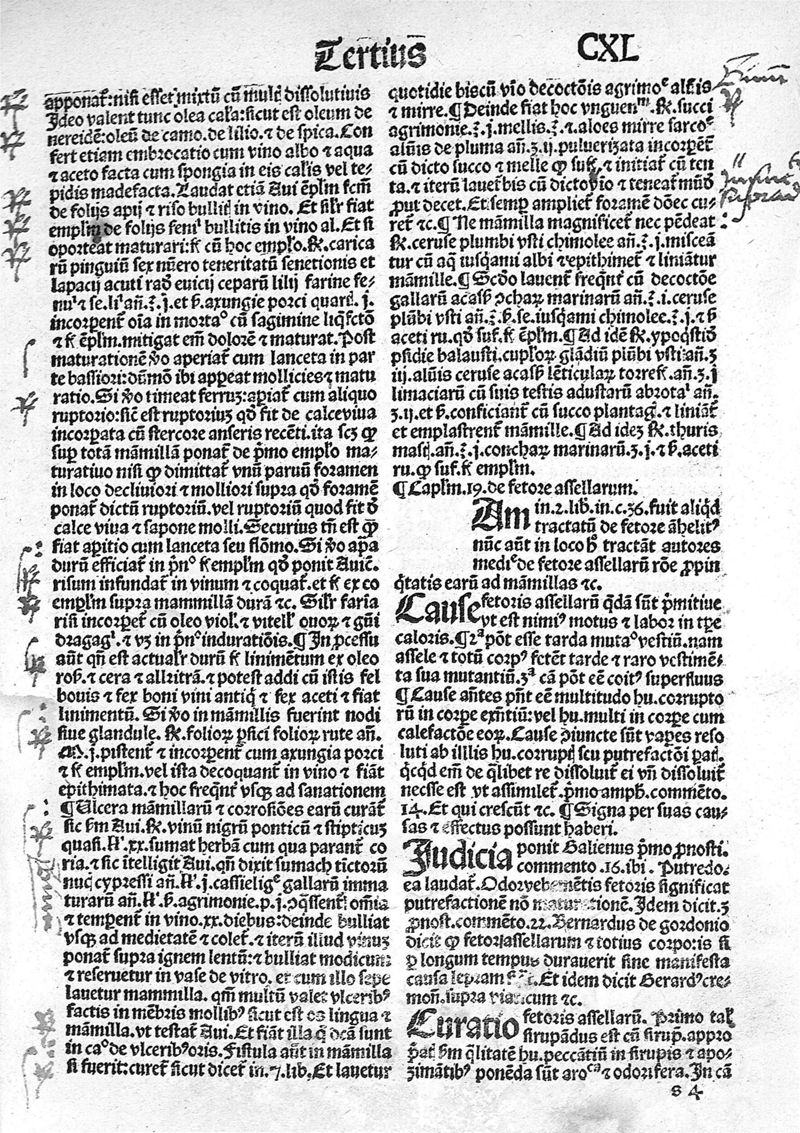 Tertius
CXL
apponat̄: nisi esset mixtū cū mult̄ dissolutiuis
Ideo valent tunc olea cal'a: sicut est oleum de
nereidē: oleū de camo. de lilio. ⁊ de spica. Con
fert etiam embrocatio cum vino albo ⁊ aqua
⁊ aceto facta cum spongia in eis calis vel te-
pidis madefacta. Laudat etiā Aui ēplm̄ fcm̄
de folijs apij ⁊ riso bullit̄ in vino. Et silr̄ fiat
emplm̄ de folijs feni' bullitis in vino al. Et si
oporteat maturari: f̄ cū hoc emplo. ℞. carica
rū pinguiū sex nūero teneritatū senetionis et
lapacij acuti rad euicij ceparū lilij farine fe-
nu' ⁊ se. li' añ. ℥. j. et ƀ. axungie porci quart̄. j.
incorpent̄ oīa in morta° cū sagimine liq̄fctō
⁊ f̄ ēplm̄. mitigat em̄ dolorē ⁊ maturat. Post
maturationē v̄o aperiat̄ cum lanceta in par
te bassiori: dūmō ibi appeat mollicies ⁊ matu
ratio. Si v̄o timeat ferrum: apiat̄ cum aliquo
ruptorio: sic̄ est ruptoriuz qđ fit de calce viua
incorpata cū stercore anseris recēti. ita scꝫ ꝙ
sup totā māmillā ponat̄ de p̄mo emplo ma-
turatiuo nisi ꝙ dimittat̄ vnū paruū foramen
in loco decliuiori ⁊ molliori supra qđ foramē
ponat̄ dictū ruptoriū. vel ruptoriū quod fit ō
calce viua ⁊ sapone molli. Securius tn̄ est ꝙ
fiat apitio cum lanceta seu flōmo. Si v̄o apa
durū efficiat̄ in p̄n° f̄ emplm̄ qđ ponit Auic.
risum infundat̄ in vinum ⁊ coquat̄. et f̄ ex eo
emplm̄ supra mammillā durā ⁊c. Silr̄ faria
risi incorpet̄ cū oleo viol. ⁊ vitell' ouoꝝ ⁊ gūi
dragag'. ⁊ vꝫ in p̄n° indurationis. ¶ In pcessu
aūt qn̄ est actualr̄ durū f̄ linimētum ex oleo
ros. ⁊ cera ⁊ allritrā. ⁊ potest addi cū istis fel
bouis ⁊ fex boni vini antiq̄ ⁊ fex aceti ⁊ fiat
linimentū. Si v̄o in māmillis fuerint nodi
siue glandule. ℞. folioꝝ p̄sici folioꝝ rute añ.
M. j. pistent̄ ⁊ incorpent̄ cum axungia porci
⁊ f̄ emplm̄. vel ista decoquant̄ in vino ⁊ fiāt
epithimata. ⁊ hoc freq̄nt̄ vsqꝫ ad sanationem
¶ Vlcera māmillarū ⁊ corrosiōes earū curat̄
sic ƀm Aui. ℞. vinū nigrū ponticū ⁊ stipticuꝫ
quasi. lt'. xx. sumat herbā cum qua parant̄ co
ria. ⁊ sic ītelligit Aui. qn̄ dixit sumach tictorū
nuc̄ cypressi añ. lt'. j. cassielig̾ gallarū imma
turarū añ. lt'. ƀ. agrimonie. p. j. ꝯq̄ssent̄ omīa
⁊ tempent̄ in vino. xx. diebus: deinde bulliat
vsqꝫ ad medietatē ⁊ colet̄. ⁊ iterū illud vinuꝫ
ponat̄ supra ignem lentū: ⁊ bulliat modicum
⁊ reseruetur in vase de vitro. et cum illo sepe
lauetur mammilla. qm̄ multū valet vlceribꝰ
factis in mēbris mollibꝰ sicut est os lingua ⁊
māmilla. vt testat̄ Aui. Et fiāt illa q̄ dcā sunt
in ca° de vlceribꝰ oris. Fistula aūt in māmilla
si fuerit: curet̄ sicut dicet̄ in. 7. lib. Et lauetur
quotidie bis cū vīo decoctōis agrimo̾ al't̄ is
⁊ mirre. ¶ Deinde fiat hoc vnguenᵐ. ℞. succi
agrimonie. ℥. j. mellis. ℥. ⁊ aloes mirre sarco̾
alūis de pluma añ. ʒ. ij. puluerizata incorpet̄
cū dicto succo ⁊ melle ꝙ suf̄. ⁊ initiat̄ cū ten
ta. ⁊ iterū lauet̄ bis cū dicto vīo ⁊ teneat̄ mūđ
ꝓut decet. Et semp ampliet̄ foramē dōec cu-
ret̄ ⁊c. ¶ Ne māmilla magnificet̄ nec pēdeat
℞. ceruse plumbi vsti chimolee añ. ℥. j. misceā
tur cū aq̄ iusq̄ami albi ⁊ epithimet̄ ⁊ liniātur
māmille. ¶ Scđo lauent̄ freq̄nt̄ cū decoctōe
gallarū acasꝭ ꝯchaꝝ marinarū añ. ℥. i. ceruse
plūbi vsti añ. ℥. ƀ. se. iusq̄ami chimolee. ℥. j. ⁊ ƀ
aceti ru. qđ suf. f̄ ēplm̄. ¶ Ad idē ℞. ypoq̄stiđ
psidie balausti. cuploꝝ glādiū plūbi vsti añ. ʒ
iij. alūis ceruse acasꝭ lēticulaꝝ torref̄. añ. ʒ. j
limaciarū cū suis testis adustarū abrota' añ.
ʒ. ij. et ƀ. conficiant̄ cū succo plantag̾. ⁊ liniāt̄
et emplastrent̄ māmille. ¶ Ad ideꝫ ℞. thuris
masti. añ. ℥. j. conchaꝝ marinarū. ʒ. j. ⁊ ƀ. aceti
ru. ꝙ suf. f̄ emplm̄.
¶ Caplm̄. 19. de fetore assellarum.
Am in. 2. lib. in. c. 36. fuit aliq̄d
tractatū de fetore āhelitꝰ
nūc aūt in loco ħ tractāt autores
medi̾ de fetore assellarū rōe ꝓpin
q̄tatis earū ad māmillas ⁊c.
Cause fetoris assellarū q̄dā sūt p̄mitiue
vt est nimiꝰ motus ⁊ labor in tp̄e
caloris. ¶ 2ᵃ pōt esse tarda muta° vestiū. nam
assele ⁊ totū corpꝰ fetēt tarde ⁊ raro vestimē-
ta sua mutantiū. 3ᵃ cā pōt eē coitꝰ superfluus
¶ Cause añtes pn̄t eē multitudo hu. corrupto
rū in corpe exn̄tiū: vel hu. multi in corpe cum
calefactōe eoꝝ. Cause ꝯiuncte sūt vapes reso
luti ab illis hu. corrupt̄ seu putrefactōi pat̄.
q̄cq̄d em̄ de q̄libet re dissoluit̄ ei vn̄ dissoluit̄
necsse est vt assimilet̄. p̄mo amph. commēto.
14. Et qui crescūt ⁊c. ¶ Signa per suas cau-
sas ⁊ effectus possunt haberi.
Judicia ponit Galienus p̄mo ꝓnosti.
commento. 16. ibi. Putredo-
ea laudat̄. Odor vehemētis fetoris significat
putrefactionē nō maturationē. Idem dicit. 3
ꝓnost. commēto. 22. Bernardus de gordonio
dicit ꝙ fetor assellarum ⁊ totius corporis si
ꝑ longum tempus durauerit sine manifesta
causa lepram Et idem dicit Gerardꝰ cre-
mon̄. supra viaticum ⁊c.
Curatio fetoris assellarū. Primo tal̄
sirupādus est cū sirup. appro
p̄at̄ ƀm q̄litatē hu. peccātiū in sirupis ⁊ apo-
zimatibꝰ ponēda sūt aroᶜᵃ ⁊ odorifera. In cā
s 4